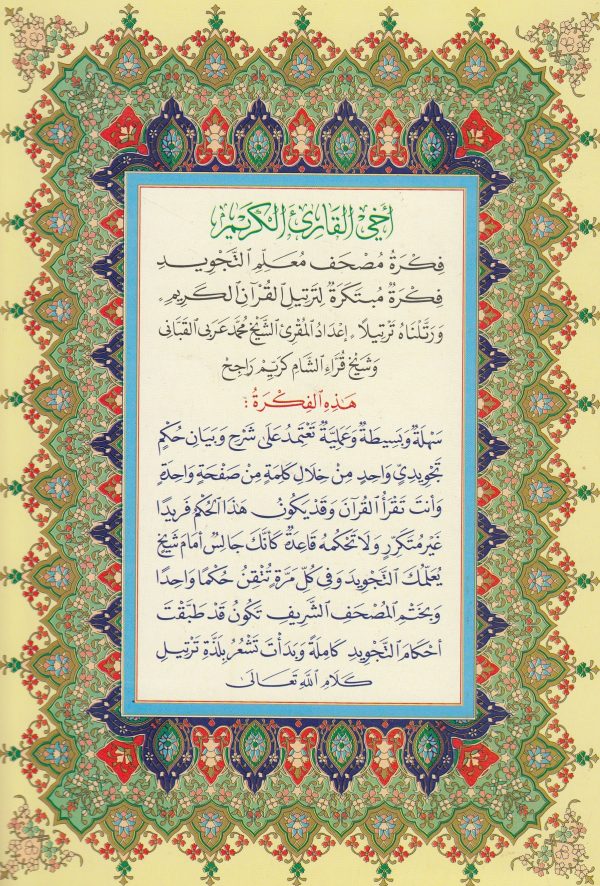 أخي القارئ الكريم
فِكْرَةُ مُصْحَفِ مُعَلِّمِ التَّجْوِيدِ
فِكْرَةٌ مُبْتَكَرَةٌ لِتَرْتِيلِ القُرْآنِ الكَرِيمِ
وَرَتَّلْنَاهُ تَرْتِيلًا إِعْدَادُ المُقْرِئ الشَّيْخ مُحَمَّد عَرَبي القَبَّاني
وَشَيْخ قُرَّاءِ الشَّامِ كَرِيِّم رَاجِح
هَذِهِ الفِكْرَةُ :
سَهْلَةٌ وَبَسِيطَةٌ وَعَمَلِيَّةٌ تَعْتَمِدُ عَلَى شَرْحِ وَبَيَانِ حُكْمٍ
تَجْوِيدِيٍّ وَاحِدٍ مِنْ خِلَالِ كَلِمَةٍ مِنْ صَفْحَةٍ وَاحِدَةٍ
وَأَنْتَ تَقْرَأُ القُرْآنَ وَقَدْ يَكُونُ هَذَا الحُكْمُ فَرِيدًا
غَيْرَ مُتَكَرِّرٍ وَلَا تَحْكُمُهُ قَاعِدَةٌ كَأَنَّكَ جَالِسٌ أَمَامَ شَيْخٍ
يُعَلِّمُكَ التَّجْوِيدَ وَفِي كُلِّ مَرَّةٍ تُتْقِنُ حُكْمًا وَاحِدًا
وَبِخَتْمِ المُصْحَفِ الشَّرِيفِ تَكُونُ قَدْ طَبَّقْتَ
أَحْكَامَ التَّجْوِيدِ كَامِلَةً وَبَدَأْتَ تَشْعُرُ بِلَذَّةِ تَرْتِيلِ
كَلَامِ اللهِ تَعَالَى